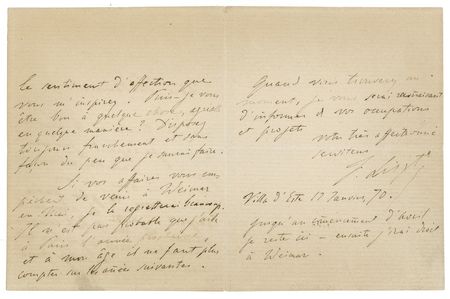 le sentiment d'affection que
vous m'inspirez. Puis-je vous
être bon à quelque chose, agréable
en quelque manière? Disposez
toujours franchement et sans
façon du peu que je saurai faire.
Si vos affaires vous em
pêchent de venir à Weimar
en je le regretterai beaucoup.
Il n'est pas probable que j'aille
à Paris l'année
et à mon âge il ne faut plus
compter sur les années suivantes.
Quand vous trouverez un
moment, je vous serai reconnaissant
d'informer d vos occupations
et projets
votre très affectionné
serviteur
F. Liszt
Villa d'Este 17 Janvier, 70.
Jusqu'au commencement d'avril
je reste ici – ensuite j'irai droit
à Weimar.